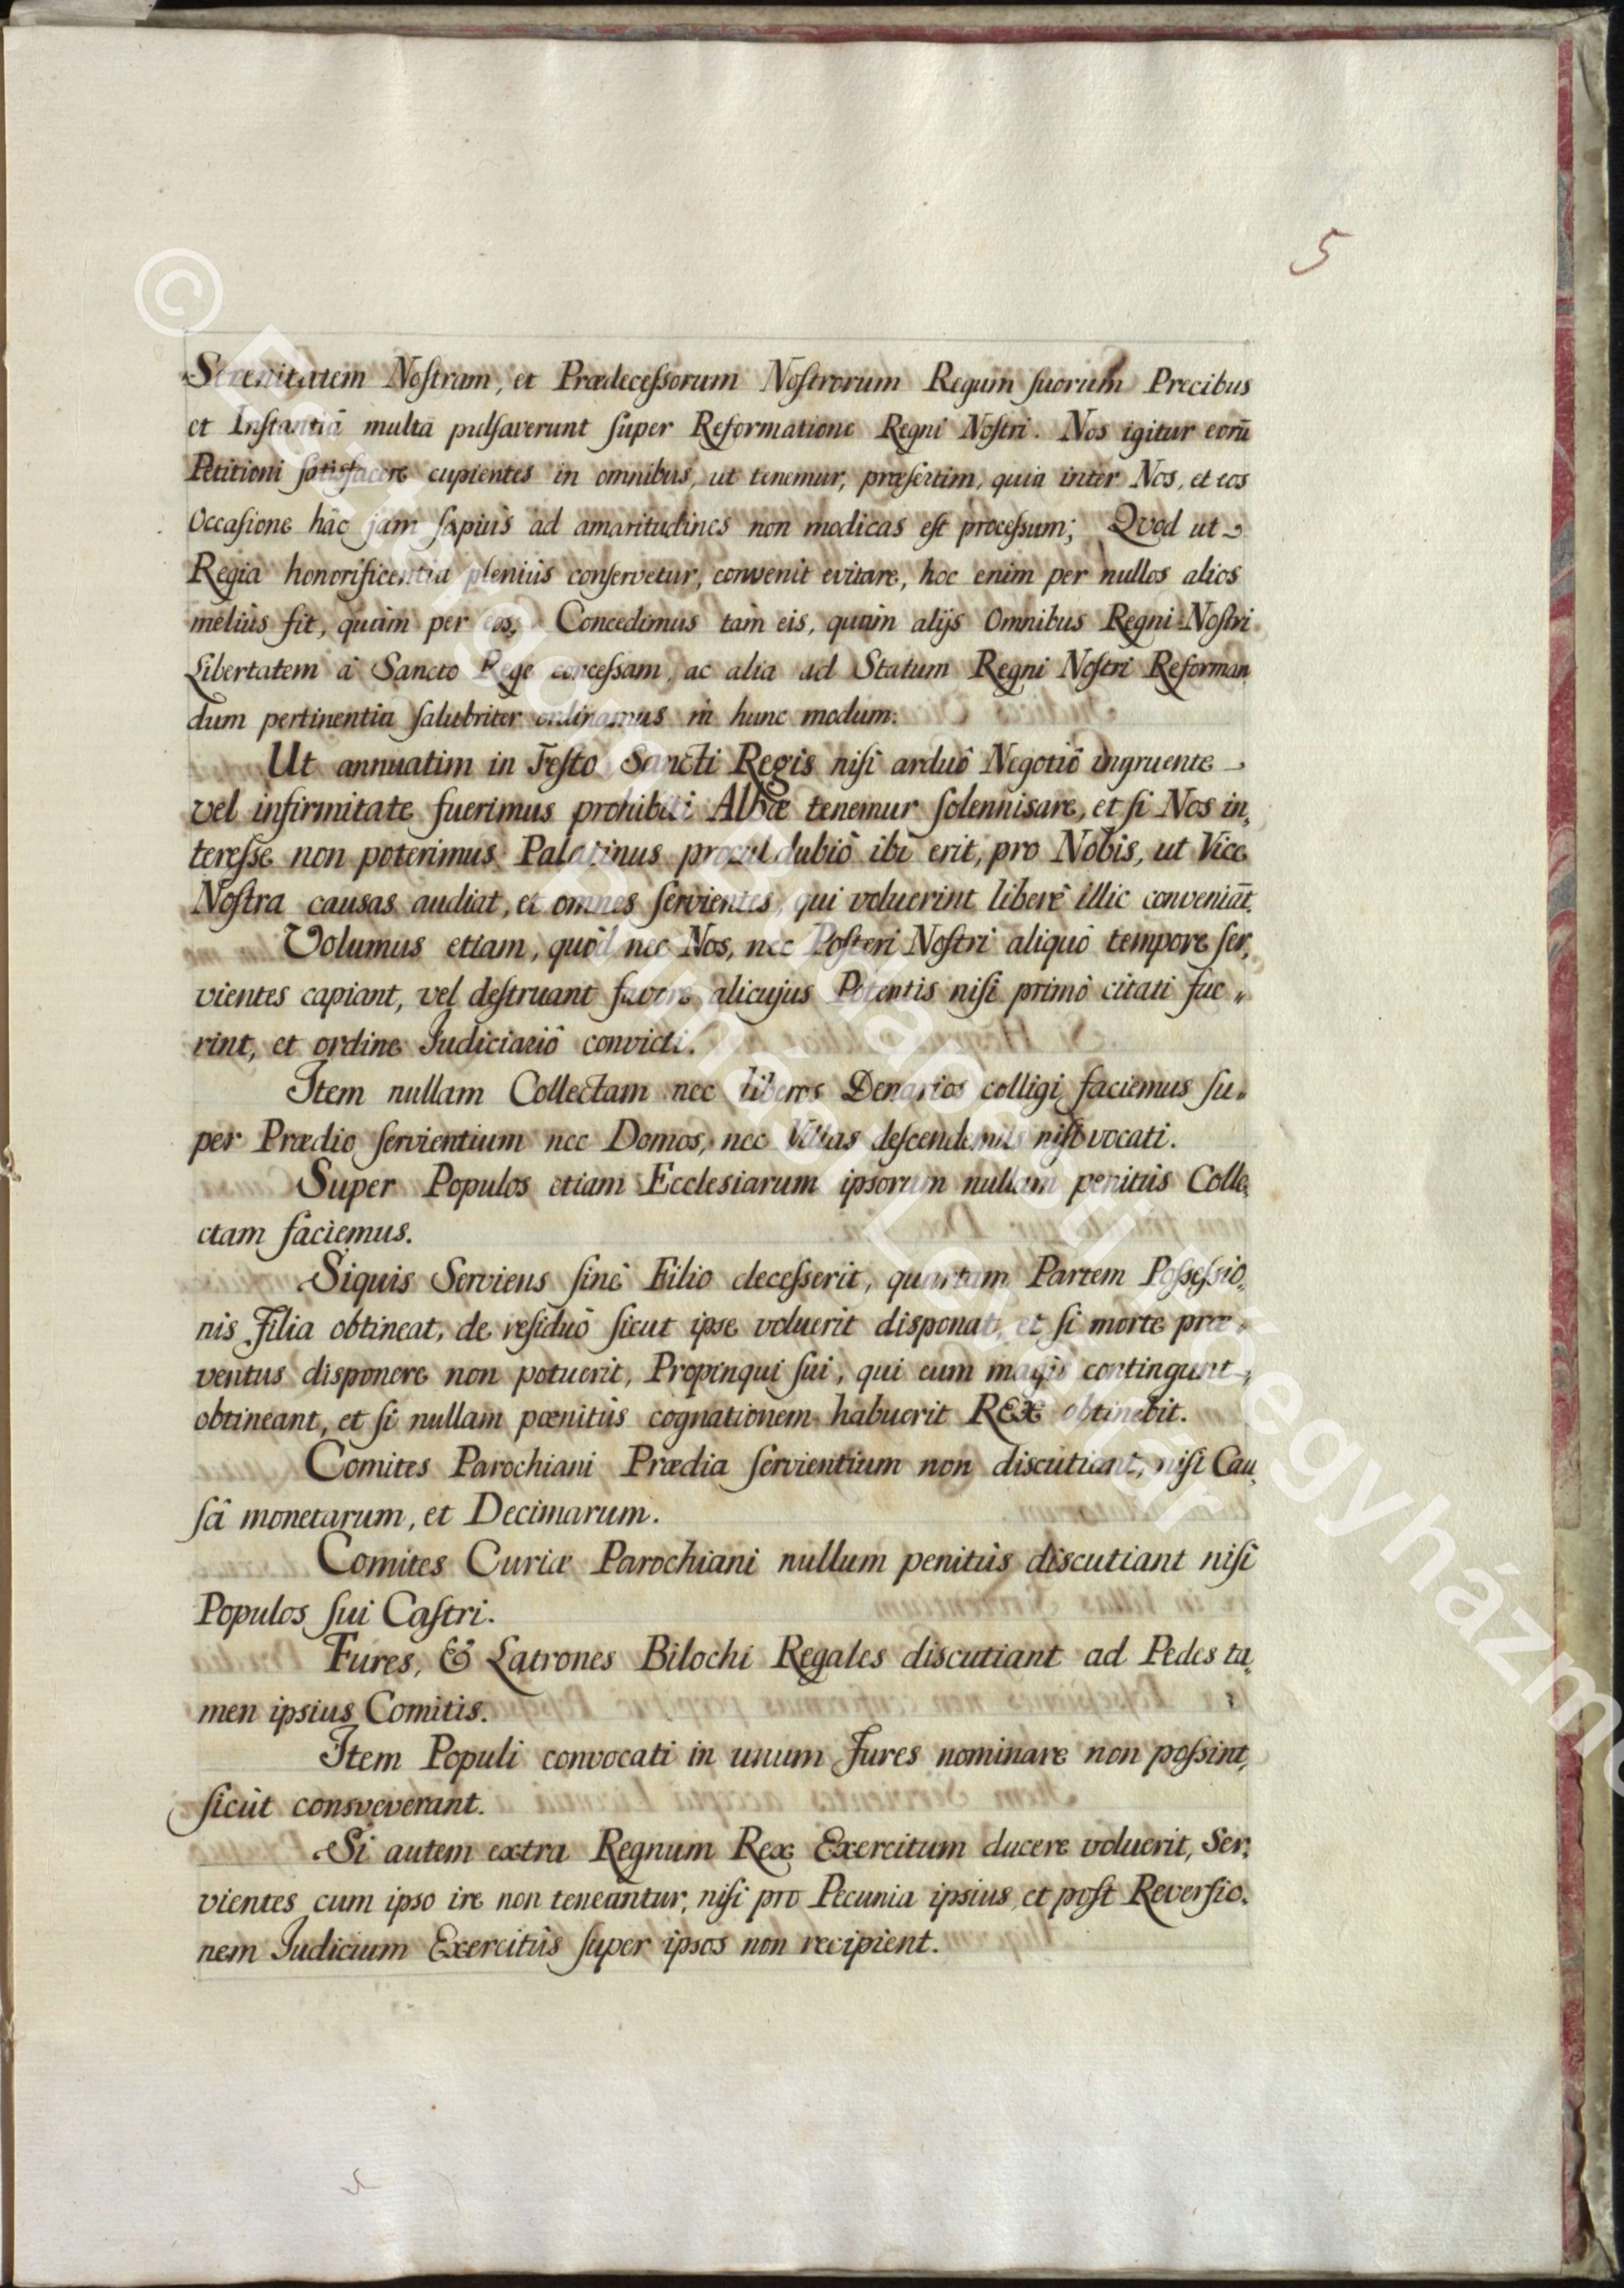 5
Serenitatem Noſtram, et Prædeceſsorum Noſtrorum Regum ſuorum Precibus
et Inſtantiâ multâ pulſaverunt ſuper Reformatione Regni Noſtri. Nos igitur eorū
Petitioni ſatisfacere cupientes in omnibus, ut tenemur, præſertim, quia inter Nos, et eos
Occaſione hâc jam ſæpiùs ad amaritudines non modicas eſt proceſsum; Qvod ut
Regia honorificentia pleniùs conſervetur, convenit evitare, hoc enim per nullos alios
meliùs fit, quàm per eos; Concedimus tàm eis, quàm alijs Omnibus Regni Noſtri
Libertatem à Sancto Rege conceſsam, ac alia ad Statum Regni Noſtri Reforman„
dum pertinentia ſalubriter ordinamus in hunc modum.
Ut annuatim in Feſto Sancti Regis niſi arduô Negotiô ingruente
vel infirmitate fuerimus prohibiti Albæ tenemur ſolenniſare, et ſi Nos in„
tereſse non poterimus Palatinus procul dubiô ibi erit, pro Nobis, ut Vice
Noſtra causas audiat, et omnes ſervientes, qui voluerint liberè illic conveniāt.
Volumus etiam, quòd nec Nos, nec Poſteri Noſtri aliquô tempore ſer„
vientes capiant, vel deſtruant favore alicujus Potentis niſi primò citati fue„
rint, et ordine Judiciariô convicti.
Item nullam Collectam nec liberos Denarios colligi faciemus ſu„
per Prædio ſervientium nec Domos, nec Villas deſcendemus niſi vocati.
Super Populos etiam Ecclesiarum ipsorum nullam penitùs Colle„
ctam faciemus.
Siquis Serviens ſinè Filio deceſserit, quartam Partem Poſseſsio„
nis Filia obtineat, de reſiduô ſicut ipse voluerit disponat, et ſi morte præ„
ventus disponere non potuerit, Propinqui ſui, qui eum magis contingunt,
obtineant, et ſi nullam pœnitùs cognationem habuerit REX obtinebit.
Comites Parochiani Prædia ſervientium non discutiant, niſi Cau„
ſâ monetarum, et Decimarum.
Comites Curiæ Parochiani nullum penitùs discutiant niſi
Populos ſui Caſtri.
Fures, & Latrones Bilochi Regales discutiant ad Pedes ta„
men ipsius Comitis.
Item Populi convocati in unum Fures nominare non poſsint,
ſicùt consveverant.
Si autem extra Regnum Rex Exercitum ducere voluerit, Ser„
vientes cum ipso ire non teneantur, niſi pro Pecunia ipsius, et poſt Reverſio„
nem Judicium Exercitûs ſuper ipsos non recipient.